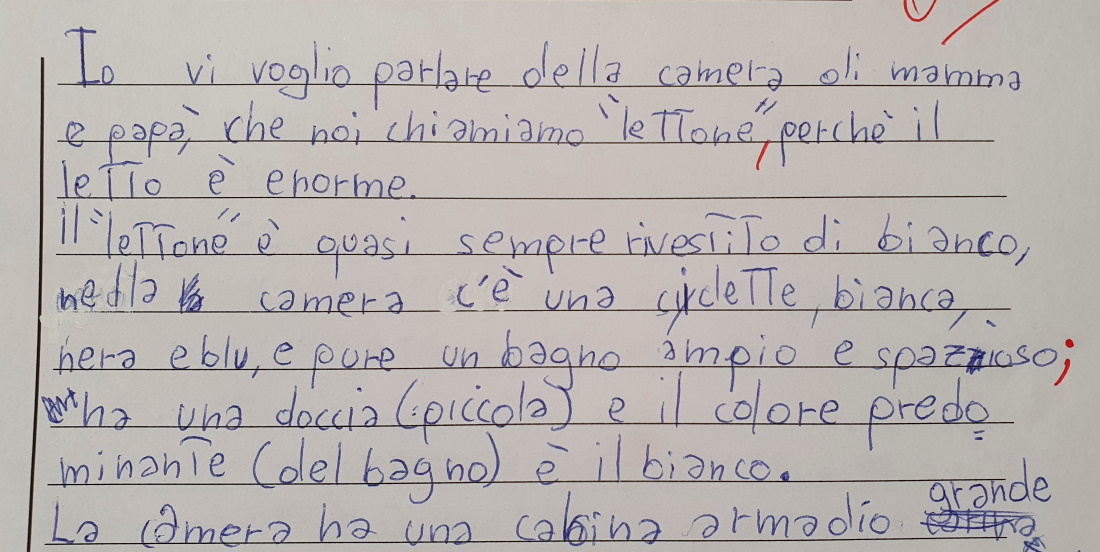 Io vi voglio parlare della camera di mamma
e papà, che noi chiamiamo "lettone", perchè il
letto è enorme.
il "lettone" è quasi sempre rivestito di bianco,
nella camera c'è una cyclette, bianca,
nera e blu, e pure un bagno ampio e spazioso;
ha una doccia (piccola) e il colore predo
minante (del bagno) è il bianco.
La camera ha una cabina armadio grande